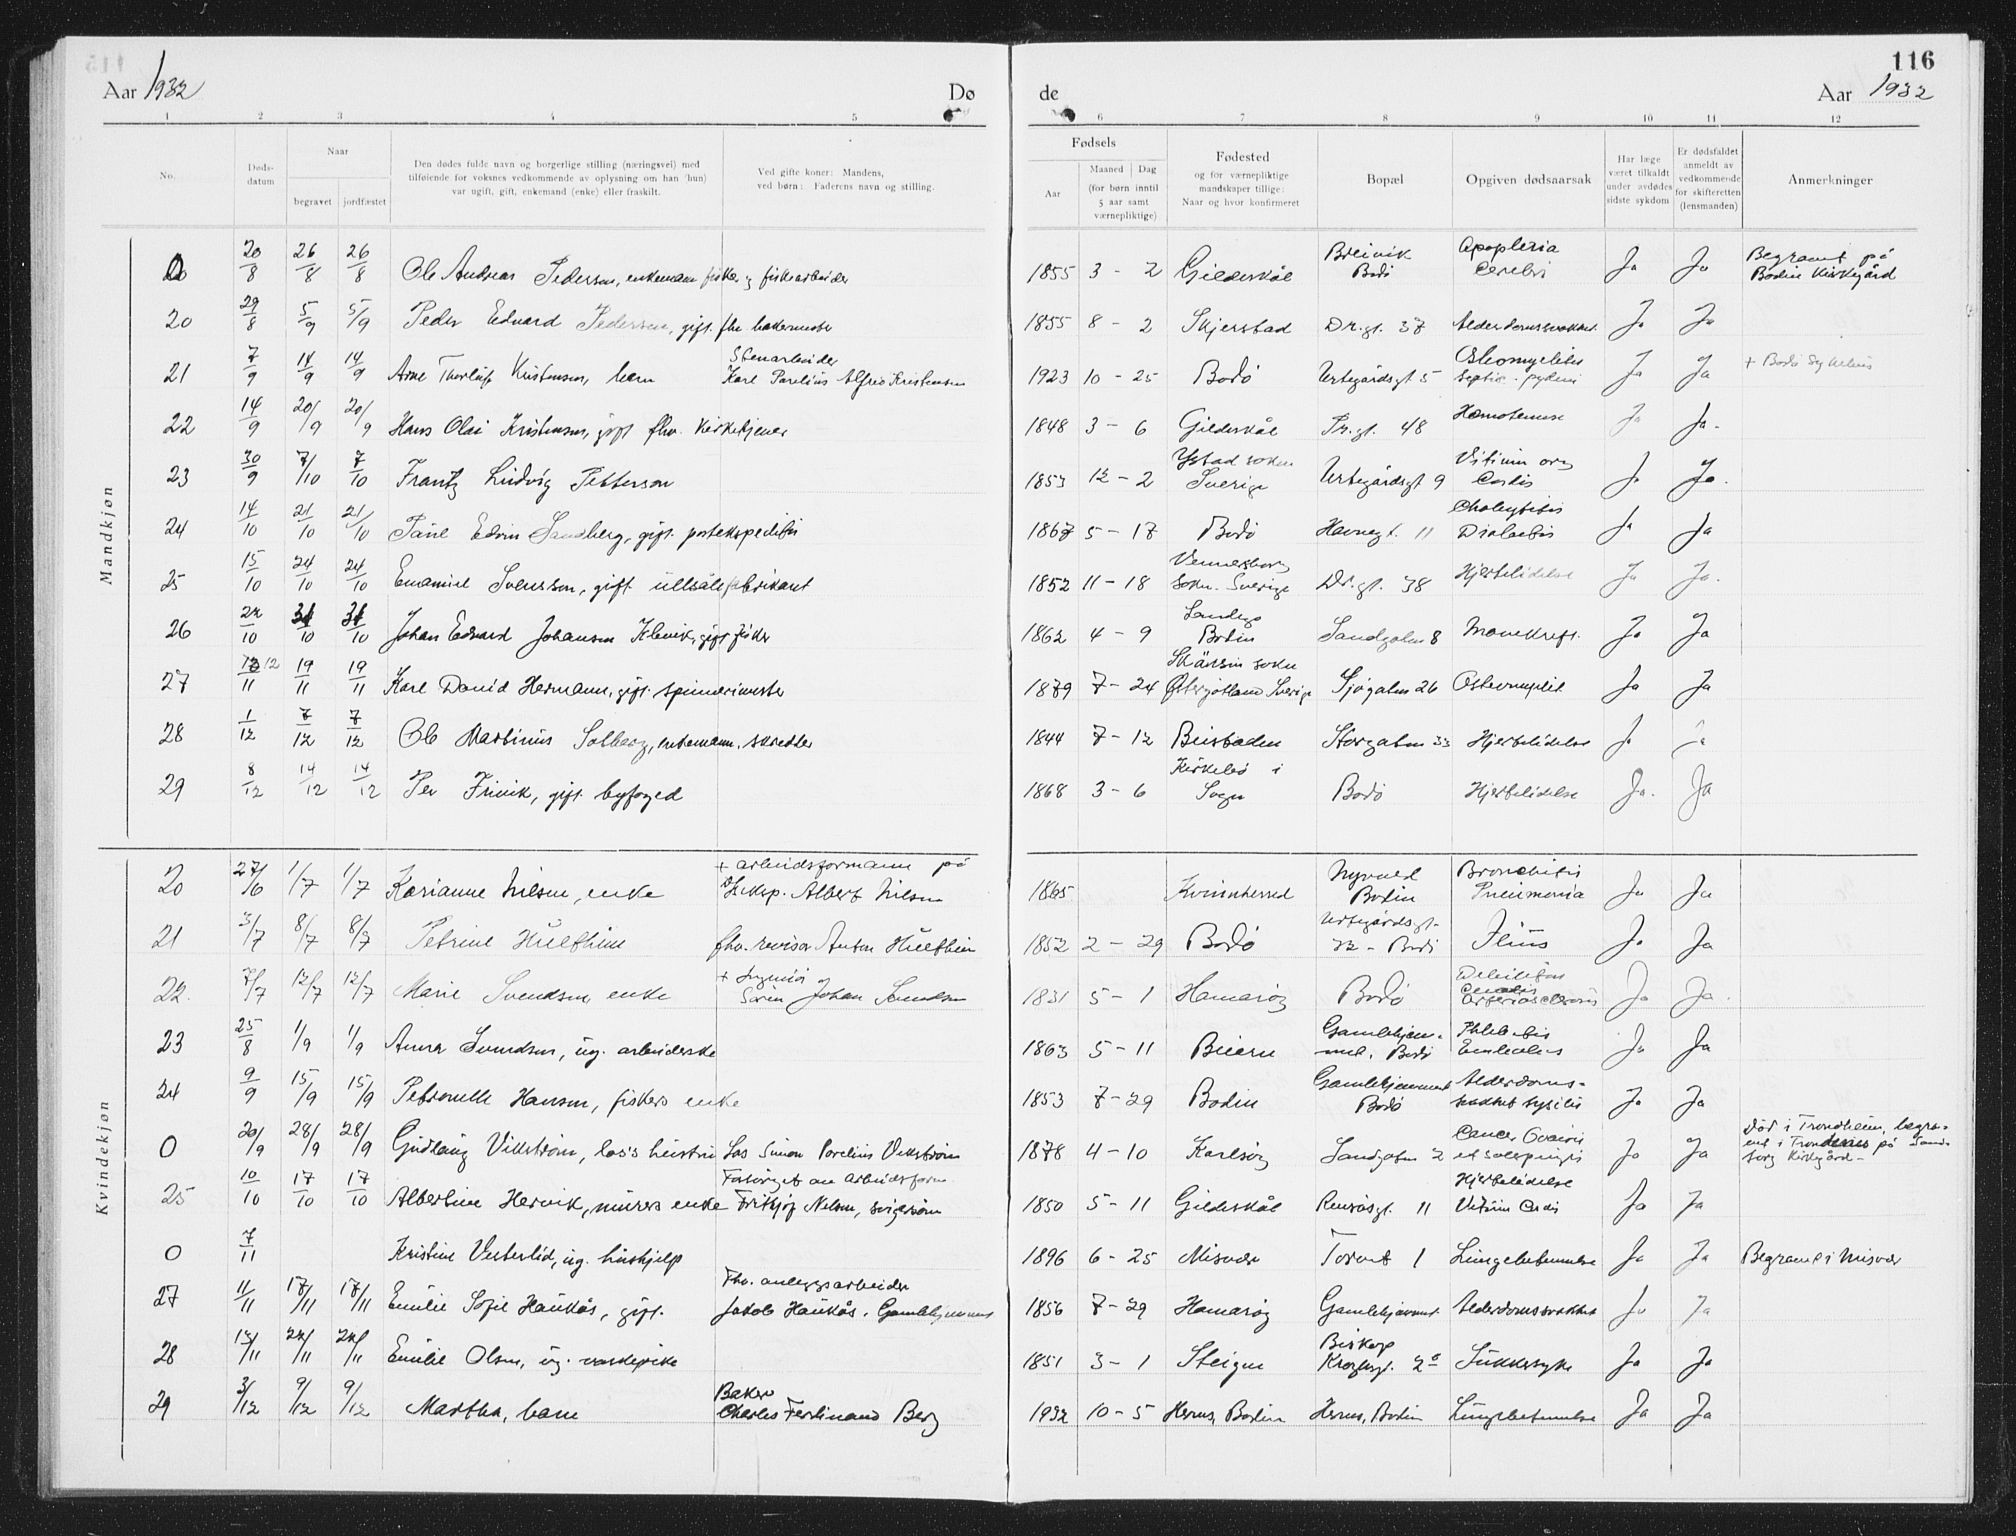 116
Aar 1932 Dø de Aar 1932
1 2 3 4 5 6 7 8 9 10 11 12
No.
Døds-
datum
Naar
begravet jordfæstet
Den dødes fulde navn og borgerlige stilling (næringsvei) med
tilføiende for voksnes vedkommende av oplysning om han (hun)
var ugift, gift, enkemand (enke) eller fraskilt.
Ved gifte koner: Mandens,
ved børn: Faderens navn og stilling.
Fødsels
Aar
Maaned Dag
(for børn inntil
5 aar samt
værnepliktige)
Fødested
og for værnepliktige
mandskaper tillige:
Naar og hvor konfirmeret
Bopæl
Opgiven dødsaarsak
Har læge
været tilkaldt
under avdødes
sidste sykdom
Er dødsfaldet
anmeldt av
vedkommende
for skifteretten
(lensmanden)
Anmerkninger
Mandkjøn
0 20/8 26/8 26/8 Ole Andreas Pedersen, enkemann fisker og fiskearbeider 1855 3 - 2 Gildeskål Breivik Bodö Apoplexia Cerebri Ja Ja Begravet på Bodin Kirkegård
20 29/8 5/9 5/9 Peder Edvard Pedersen, gift. fhv. bakermester 1855 8 - 2 Skjerstad Dr.gt. 37 Alderdomssvakhet Ja Ja
21 7/9 14/9 14/9 Arne Thorleif Kristensen, barn Stenarbeider Karl Parelius Alfred Kristensen 1923 10 - 25 Bodö Urtegårdsgt 5 Osteomyelitis Septic. pyämi Ja Ja + Bodö Sykehus
22 14/9 20/9 20/9 Hans Olai Kristensen, gift fhv. Kirketjener 1848 3 - 6 Gildeskål Pr.gt. 48 Hæmatemese Ja Ja.
23 30/9 7/10 7/10 Frantz Ludvig Petterson 1853 12 - 2 Ystad soken Sverige Urtegårdsgt 9 Vitium org Cordis Ja Ja.
24 14/10 21/10 21/10 Paul Edvin Sandberg, gift. postekspeditör 1867 5 - 17 Bodö Havnegt. 11 Diabetis Ja Ja
25 15/10 24/10 24/10 Emanuel Svensson, gift. ullsålefabrikant 1852 11 - 18 Vennersborg Sokn. Sverige Dr.gt. 38 Hjertelidelse Ja Ja.
26 22/10 31/10 31/10 Johan Edvard Johansen Klevik, gift fisker 1862 4 - 9 Landego Bodin Sandgaten 8 Mavekreft. Ja Ja
27 12/11 19/11 19/11 Karl David Hermann, gift. spinnerimester 1879 7 - 24 soken Östergötland Sverige Sjögaten 26 Ja Ja
28 1/12 7/12 7/12 Ole Martinus Solberg, enkemann. skredder 1844 7 - 12 Beitstaden Storgaten 33 Hjertelidelse Ja Ja
29 8/12 14/12 14/12 Per Frivik, gift. byfoged 1868 3 - 6 Kirkebö i Sogn Bodö Hjertelidelse Ja. Ja
Kvindekjøn
20 27/6 1/7 1/7 Karianne Nilsen, enke + arbeidsformann på Albert Nilsen 1865 Kvinnherred Bodin Bronchitis Pneumonia Ja Ja
21 3/7 8/7 8/7 Petrine Hulthin fhv. revisor Anton Hulthin 1852 2 - 29 Bodö Urtegårdsgt. 22 - Bodö Ileus Ja Ja
22. 7/7 12/7 12/7 Marie Svendsen, enke + Sören Johan Svendsen 1831 5 - 1 Hamaröy Bodö Debilitas Arteriosclerosis Ja Ja.
23 25/8 1/9 1/9 Anna Svendsen, ug. arbeiderske 1863 5 - 11 Beiern Gamlehjem- met, Bodö Phlebitis Embolus Ja Ja
24 9/9 15/9 15/9 Petronelle Hansen, fiskers enke 1853 7 - 29 Bodin Gamlehjemmet Bodö Alderdoms- Ja Ja
0 20/9 28/9 28/9 Gudlaug Vikström, los's hustru Los Simon Parelius Vikström 1878 4 - 10 Karlsöy Sandgaten 2 Cancer Ovarii et salpingis Ja Ja Död i Trondheim, begra- vet i Tromsö
25 10/10 17/10 17/10 Albertine Hervik, murers enke Forsörget av arbeidsform. Fritjof Nilsen, svigersön 1850 5 - 11 Gildeskål Rensåsgt. 11 Hjertelidelse Vitium Cordis Ja Ja
0 7/11 Kristine Vesterlid, ug. hushjelp 1896 6 - 25 Misvær Torvet 1 Lungebetennelse Ja Ja Begravet i Misvær
27 11/11 17/11 17/11 Emilie Sofie Haukås, gift. Fhv. anleggsarbeider Jakob Haukås, Gamlehjemmet 1856 7 - 29 Hamaröy Gamlehjemmet Alderdomssvakhet Ja Ja
28 24/11 24/11 Emilie Olsen, ug. vaskepike 1851 3 - 1 Steigen Biskop Kroghsgt. 2 Sukkersyke Ja Ja
29 3/12 9/12 9/12 Martha, barn Baker Charles Ferdinand Berg 1932 10 - 5 Hernes, Bodin Hernes, Bodin Lungebetennelse Ja Ja